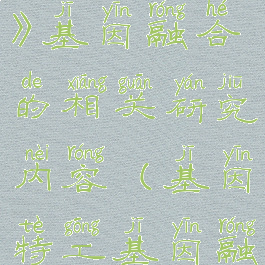 jī yīn róng hé
》基因融合
de xiāng guān yán jiū
的相关研究
nèi róng jī yīn
内容(基因
tè gōng jī yīn róng
特工基因融